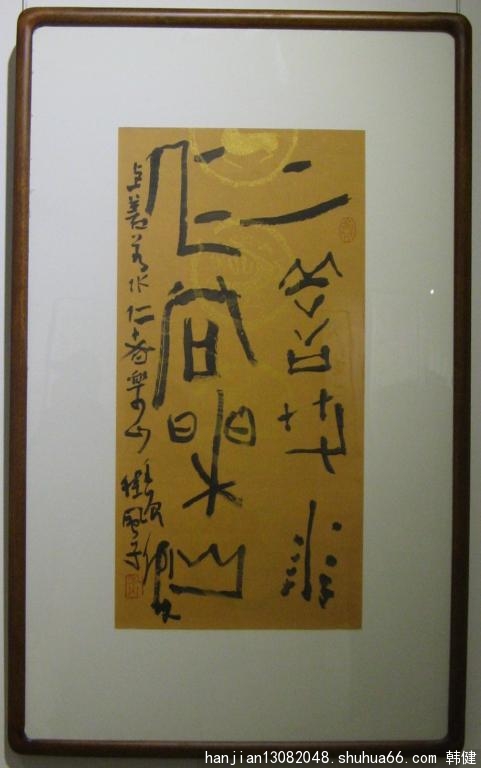 上善若水
仁者樂山
上善若水仁者樂山
hanjian13082048.shuhua66.com 韩健